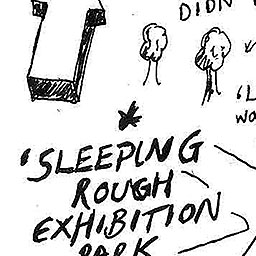 DIDN'
'L
WO
'SLEEPING
ROUGH
EXHIBITION
PARK